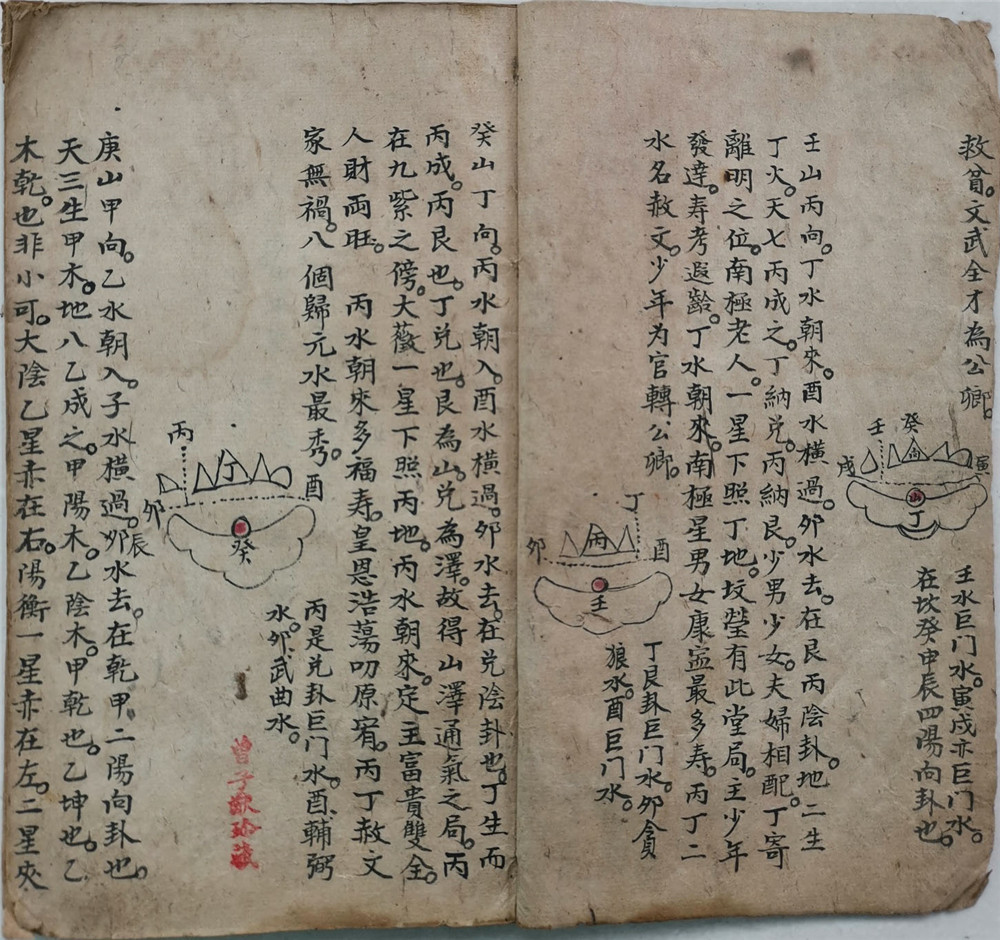 救貧。文武全才為公卿。
癸
壬
向
戌
寅
山
丁
壬水巨門水。寅戌亦巨門水。
在坎癸申辰四陽向卦也。
壬山丙向。丁水朝來。酉水橫過。卯水去。在艮丙陰卦。地二生
丁火。天七丙成之。丁納兌。丙納艮。少男少女。夫婦相配。丁寄
離明之位。南極老人。一星下照丁地。坟塋有此堂局。主少年
發達。寿考遐齡。丁水朝來。南極星男女康寍最多寿。丙丁二
水名赦文。少年为官轉公卿。
丁
卯
丙
酉
壬
丁艮卦巨門水。卯貪
狼水。酉巨門水。
癸山丁向。丙水朝入。酉水橫過。卯水去。在兌陰卦也。丁生而
丙成。丙艮也。丁兌也。艮為山。兌為澤。故得山澤通氣之局。丙
在九紫之傍。大薇一星下照丙地。丙水朝來。定主富貴雙全。
人財両旺。 丙水朝來多福寿。皇恩浩蕩叨原宥。丙丁赦文
家無禍。八個歸元水最秀。
丙
丁
酉
卯
辰
癸
丙是兌卦巨門水。酉輔弼
水。卯武曲水。
曾子欽珍藏
庚山甲向。乙水朝入。子水橫過。卯水去。在乾甲二陽向卦也。
天三生甲木。地八乙成之。甲陽木。乙陰木。甲乾也。乙坤也。乙
木乾。也非小可。大陰乙星赤在右。陽衡一星赤在左。二星夾